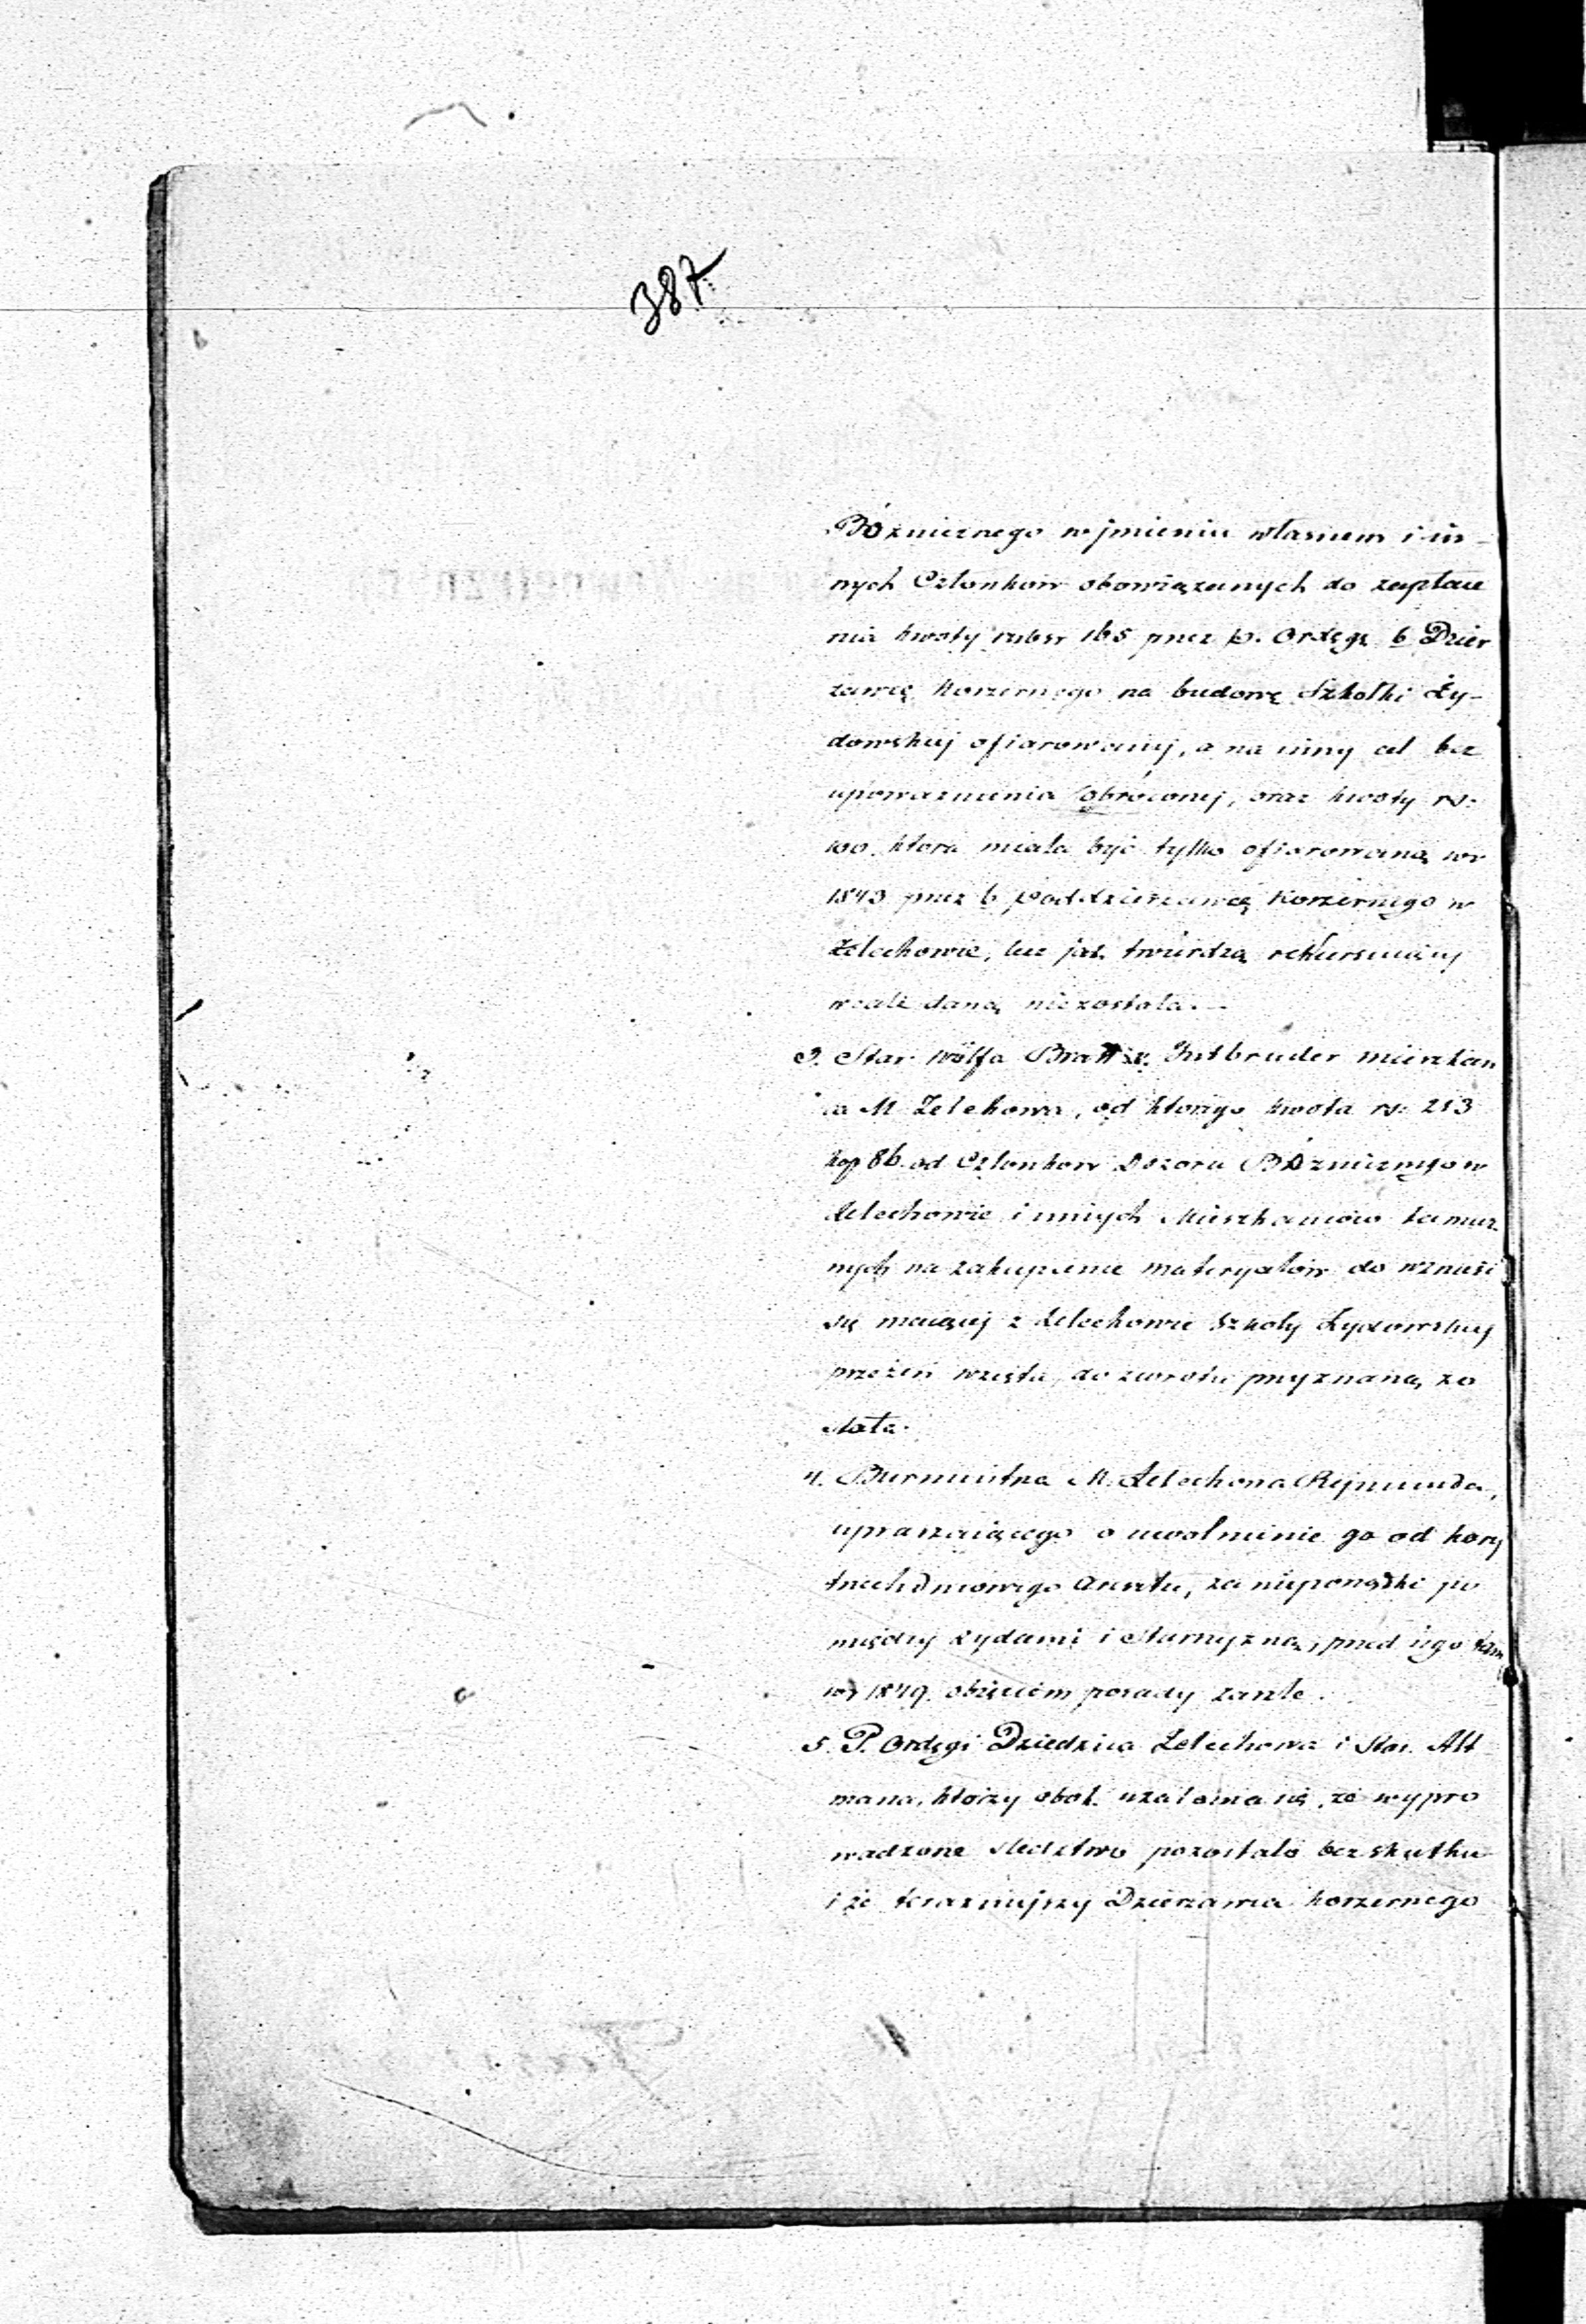 387.
Bóżnicznego w jmieniu własnem i in-
nych Członków obowiązanych do zapłace
nia kwoty rubsr 165 przez p. Ordęgę b Dzier
żawcę Koszernego na budowę Szkółki Ży-
dowskiej ofiarowanej, a na inny cel bez
upoważnienia obróconej, oraz kwoty rs:
100. która miała być tylko ofiarowaną w r
1843 przez b Poddzierżawcę Koszernego w
Żelechowie, lecz jak twierdzą rekursujący
wcale daną niezostała. —
3. Star Wolfa Gutbruder mieszkań
ca M Żelechowa, od którego kwota rs: 213
kop 86. od Członków Dozoru Bóżnicznego w
Żelechowie i innych Mieszkańców tamecz
nych na zakupienie materyałów do wznieść
się mającej z Żelechowie Szkoły Żydowskiej
przezeń wzięta, do zwrotu przyznaną zo
stała.
4. Burmistrza M. Żelechowa Rejmunda,
upraszającego o uwolnienie go od kary
trzechdniowego Aresztu, za nieporządki po
między żydami i Starszyzną, przed jego tam
w r 1849. objęciem posady zaszłe.
5. P. Ordęgi Dziedzica Żelechowa i Star. Alt
mana, którzy obok użalenia się, że wypro
wadzone śledztwo pozostało bez skutku
i że teraźniejszy Dzierżawca koszernego